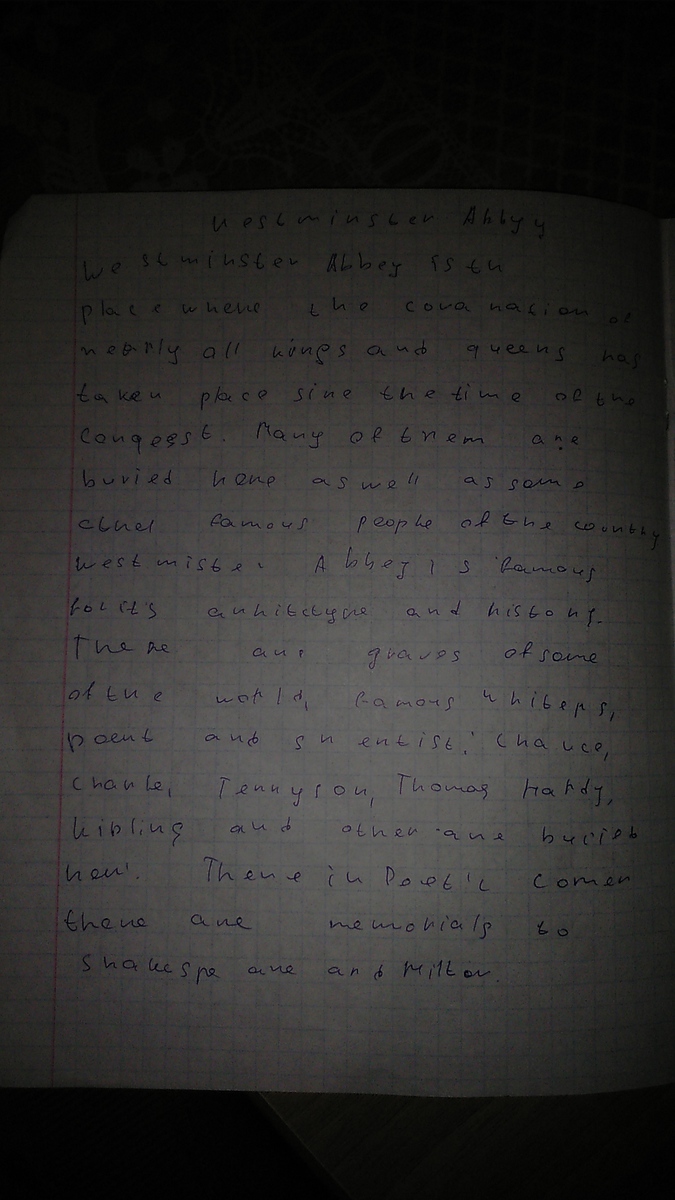 Westminster Abbyy
Westminster Abbey is th
place where the coronation of
nearly all kings and queens has
taken place sine the time of the
Conqest. Many of them are
buried here as well as some
other famous people of the country
Westmister Abbey is famous
for it's and history.
There are graves of some
of the world, famous whiters,
poent and Chauce,
Charle, Tennyson, Thomas Hardy,
Kipling and other are buried
here. There in Poet's Corner
there are memorials to
Shakespeare and Milton.